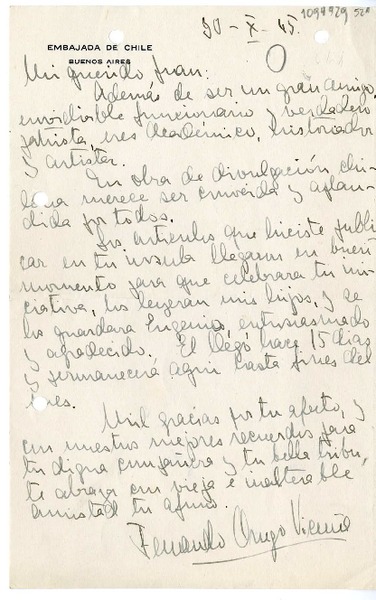 1094929 52A
30-X-45.
EMBAJADA DE CHILE
BUENOS AIRES
Mi querido Juan:
Además de ser un gran amigo,
envidiable funcionario y verdadero
artista, eres Académico, historiador
y artista.
Tu obra de divulgación chi-
lena merece ser conocida y aplau-
dida por todos.
Los artículos que hiciste publi-
car en tu ínsula llegaron en buen
momento para que celebrara tu ini-
ciativa, los leyeran mis hijos, y se
los guardara Eugenio, entusiasmado
y agradecido. El llegó hace 15 días
y permanecerá aquí hasta fines del
mes.
Mil gracias por tu afecto, y
con nuestros mejores recuerdos para
tu digna compañera y tu bella tribu,
te abraza con vieja e inalterable
amistad tu afmo.
Fernando Orrego Vicuña